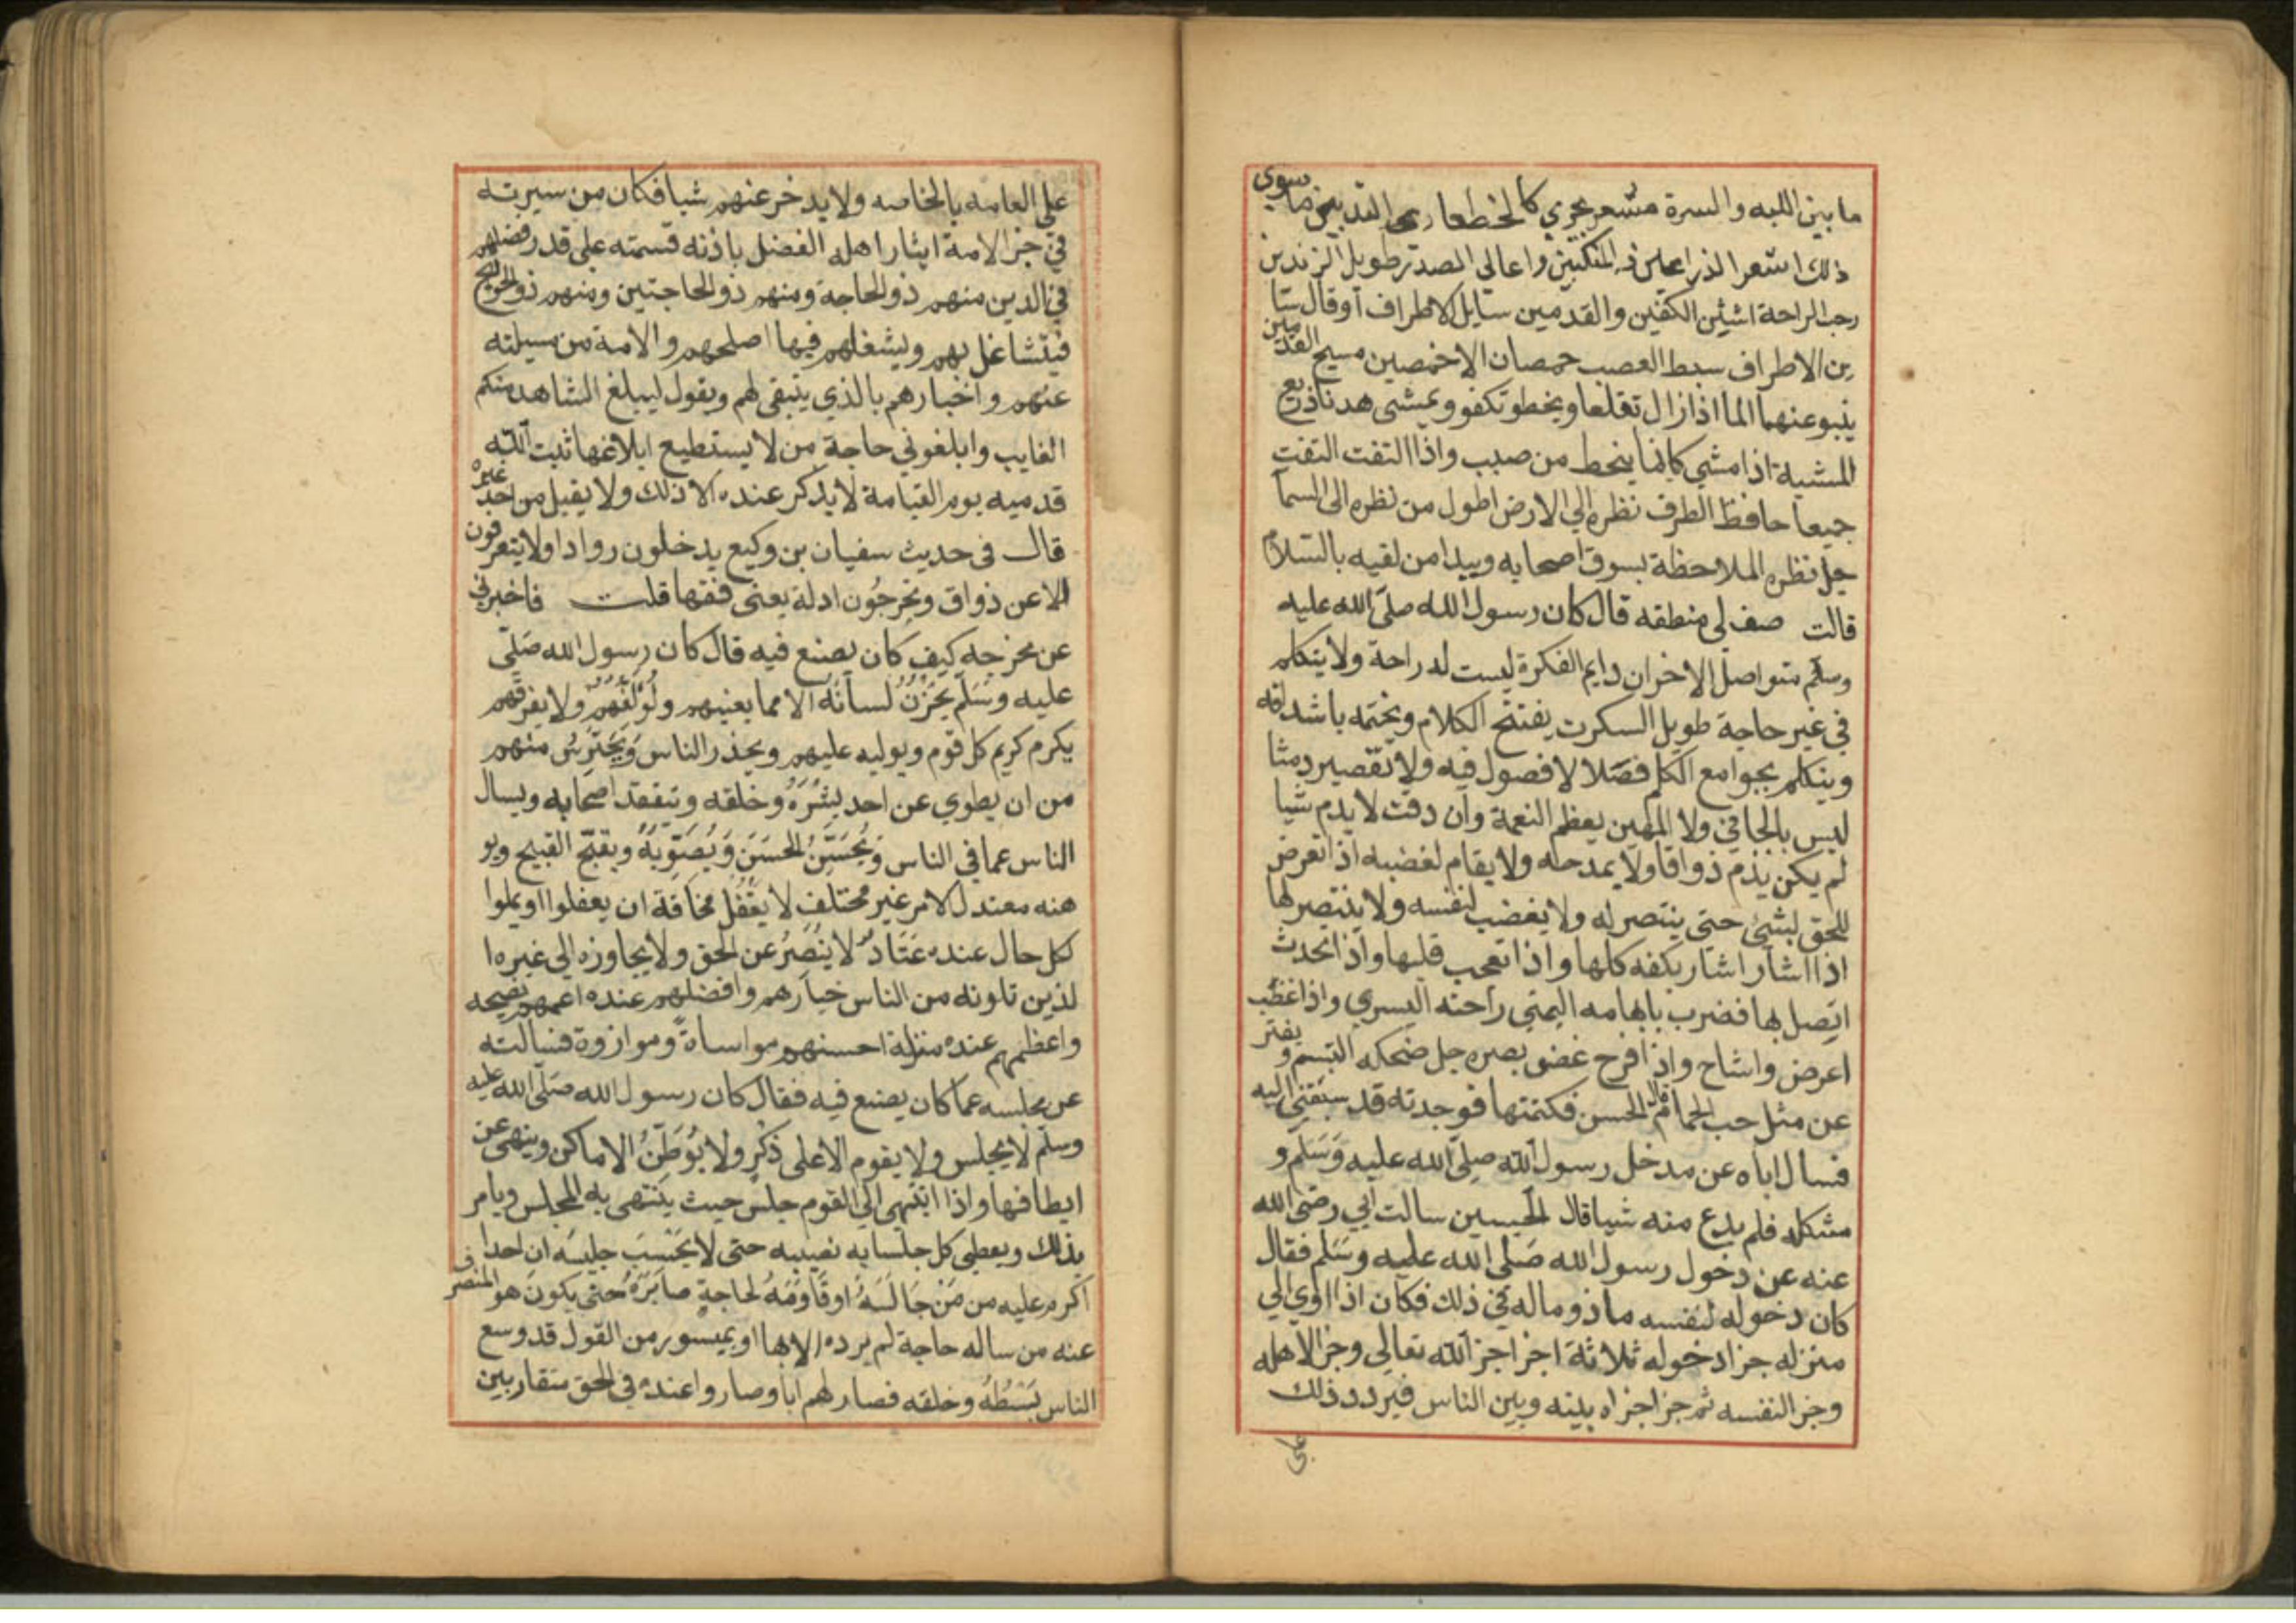 ما بين اللبه والسرة مشعر يجري كالخط عاري الثديين ما سوى
ذلك اشعر الذراعين والمنكبين واعالي الصدر طويل الزندين
رحب الراحة اشثن الكفين والقدمين سايل الاطراف او قال سا
ين الاطراف سبط العصب خمصان الاخمصين مسيح القدمين
ينبو عنهما الما اذا زال تقلعا ويخطو تكفو ويمشى هدنا ذريع
المشية اذا مشي كانما ينحط من صبب واذا التفت التفت
جميعا حافظ الطرف نظره الي الارض اطول من نظره الى السما
جل نظره الملاحظة يسوق اصحابه ويبدا من لقيه بالسلام
قالت صف لي منطقه قال كان رسول الله صلى الله عليه
وسلم متواصل الاخزان دايم الفكرة ليست له راحة ولا يتكلم
في غير حاجة طويل السكوت يفتتح الكلام ويختمه باشداقه
ويتكلم بجوامع الكلم فصلا لا فصول فيه ولا تقصير دمثا
ليس بالجافي ولا المهين يعظم النعمة وان دقت لا يذم شيا
لم يكن يذم ذواقا ولا يمدحه ولا يقام لغضبه اذا تعرض
للحق لشئ حتى ينتصر له ولا يغضب لنفسه ولا ينتصر لها
اذا اشار اشار بكفه كلها واذا تعجب قلبها واذا تحدث
اتصل بها فضرب بابهامه اليمنى راحته اليسرى واذا غظب
اعرض واشاح واذا افرح غض بصره جل ضحكه التبسم ويفتر
عن مثل حب الحمام قال الحسن فكتمتها فوجدته قد سبقني اليه
فسال اباه عن مدخل رسول الله صلى الله عليه وسلم و
مشكله فلم يدع منه شيا قال الحسين سالت ابي رضي الله
عنه عن دخول رسول الله صلى الله عليه وسلم فقال
كان دخوله لنفسه ماذوما له في ذلك فكان اذا اوي الي
منزله جزا دخوله ثلاثة اجزا جز الله تعالي وجز الاهله
وجز النفسه ثم جزا جزاه بينه وبين الناس فيردد ذلك
على
على العامه بالخاصه ولا يدخر عنهم شيا فكان من سيرته
في جز الامة ايثار اهله الفضل باذنه قسمته على قدر فضلهم
في الدين منهم ذو الحاجة ومنهم ذو الحاجتين ومنهم ذو الحوايج
فيتشاغل بهم ويشغلهم فيها اصلحهم والامة من مسيلته
عنهم واخبارهم بالذي ينبقى لهم ويقول ليبلغ الشاهد منكم
الغايب وابلغوني حاجة من لا يستطيع ابلاغها ثبت الله
قدميه يوم القيامة لا يذكر عنده الا ذلك ولا يقبل من احد غيره
قال فى حديث سفيان بن وكيع يدخلون روادا ولا يتعرفون
الا عن ذواق ويخرجون ادلة يعنى فقها قلت فاخبرني
عن مخرجه كيف كان يصنع فيه قال كان رسول الله صلى
عليه وسلم يخزن لسانه الا مما يعنيهم ولولفهم ولا يفرقهم
يكرم كريم كل قوم ويوليه عليهم ويحذر الناس ويحترس منهم
من ان يطوي عن احد بشره وخلقه ويتفقد اصحابه ويسال
الناس عما في الناس ويحسن الحسن ويصوبه ويقبح القبيح ويو
هنه معتدل الامر غير مختلف لا يغفل مخافة ان يعفلوا او يملوا
لكل حال عنده عتاد لا ينصر عن الحق ولا يجاوزه الى غيره ا
لذين تلونه من الناس خيارهم وافضلهم عنده اعمهم نصيحه
واعظمهم عنده منزلة احسنهم مواساة وموازوة فسالته
عن مجلسه عما كان يصنع فيه فقال كان رسول الله صلى الله عليه
وسلم لا يجلس ولا يقوم الا على ذكر ولا يوطن الاماكن وينهى عن
ايطافها واذا انتهى الي القوم جلس حيث ينتهى به المجلس ويامر
بذلك ويعطي كل جلسايه نصيبه حتى لا يحسب جليسه ان احدا
اكرم عليه من من جالسه او قاومه لحاجة صابره حتى يكون هو المنصرف
عنه من ساله حاجة لم يرده الا بها او بميسور من القول قد وسع
الناس بسطه وخلقه فصار لهم ابا وصاروا عنده في الحق متقاربين